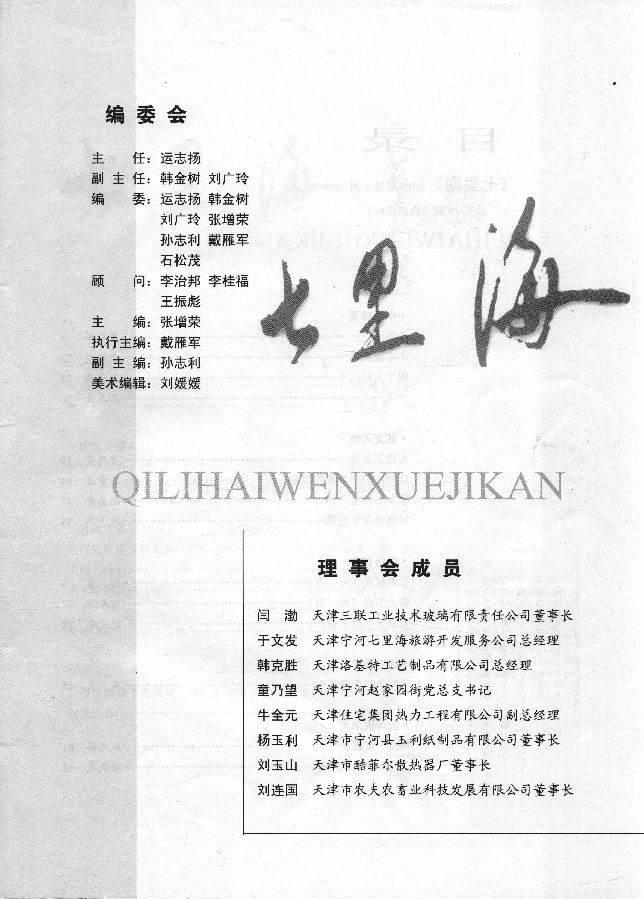 编委会
主　　任：运志扬
副 主 任：韩金树 刘广玲
编　　委：运志扬 韩金树
刘广玲 张增荣
孙志利 戴雁军
石松茂
顾　　问：李治邦 李桂福
王振彪
主　　编：张增荣
执行主编：戴雁军
副 主 编：孙志利
美术编辑：刘媛媛
七里海
QILIHAIWENXUEJIKAN
理事会成员
闫　渤　天津三联工业技术玻璃有限责任公司董事长
于文发　天津宁河七里海旅游开发服务公司总经理
韩克胜　天津洛基特工艺制品有限公司总经理
童乃望　天津宁河赵家园街党总支书记
牛金元　天津住宅集团热力工程有限公司副总经理
杨玉利　天津市宁河县玉利纸制品有限公司董事长
刘玉山　天津市酷菲尔散热器厂董事长
刘连国　天津市农夫农畜业科技发展有限公司董事长